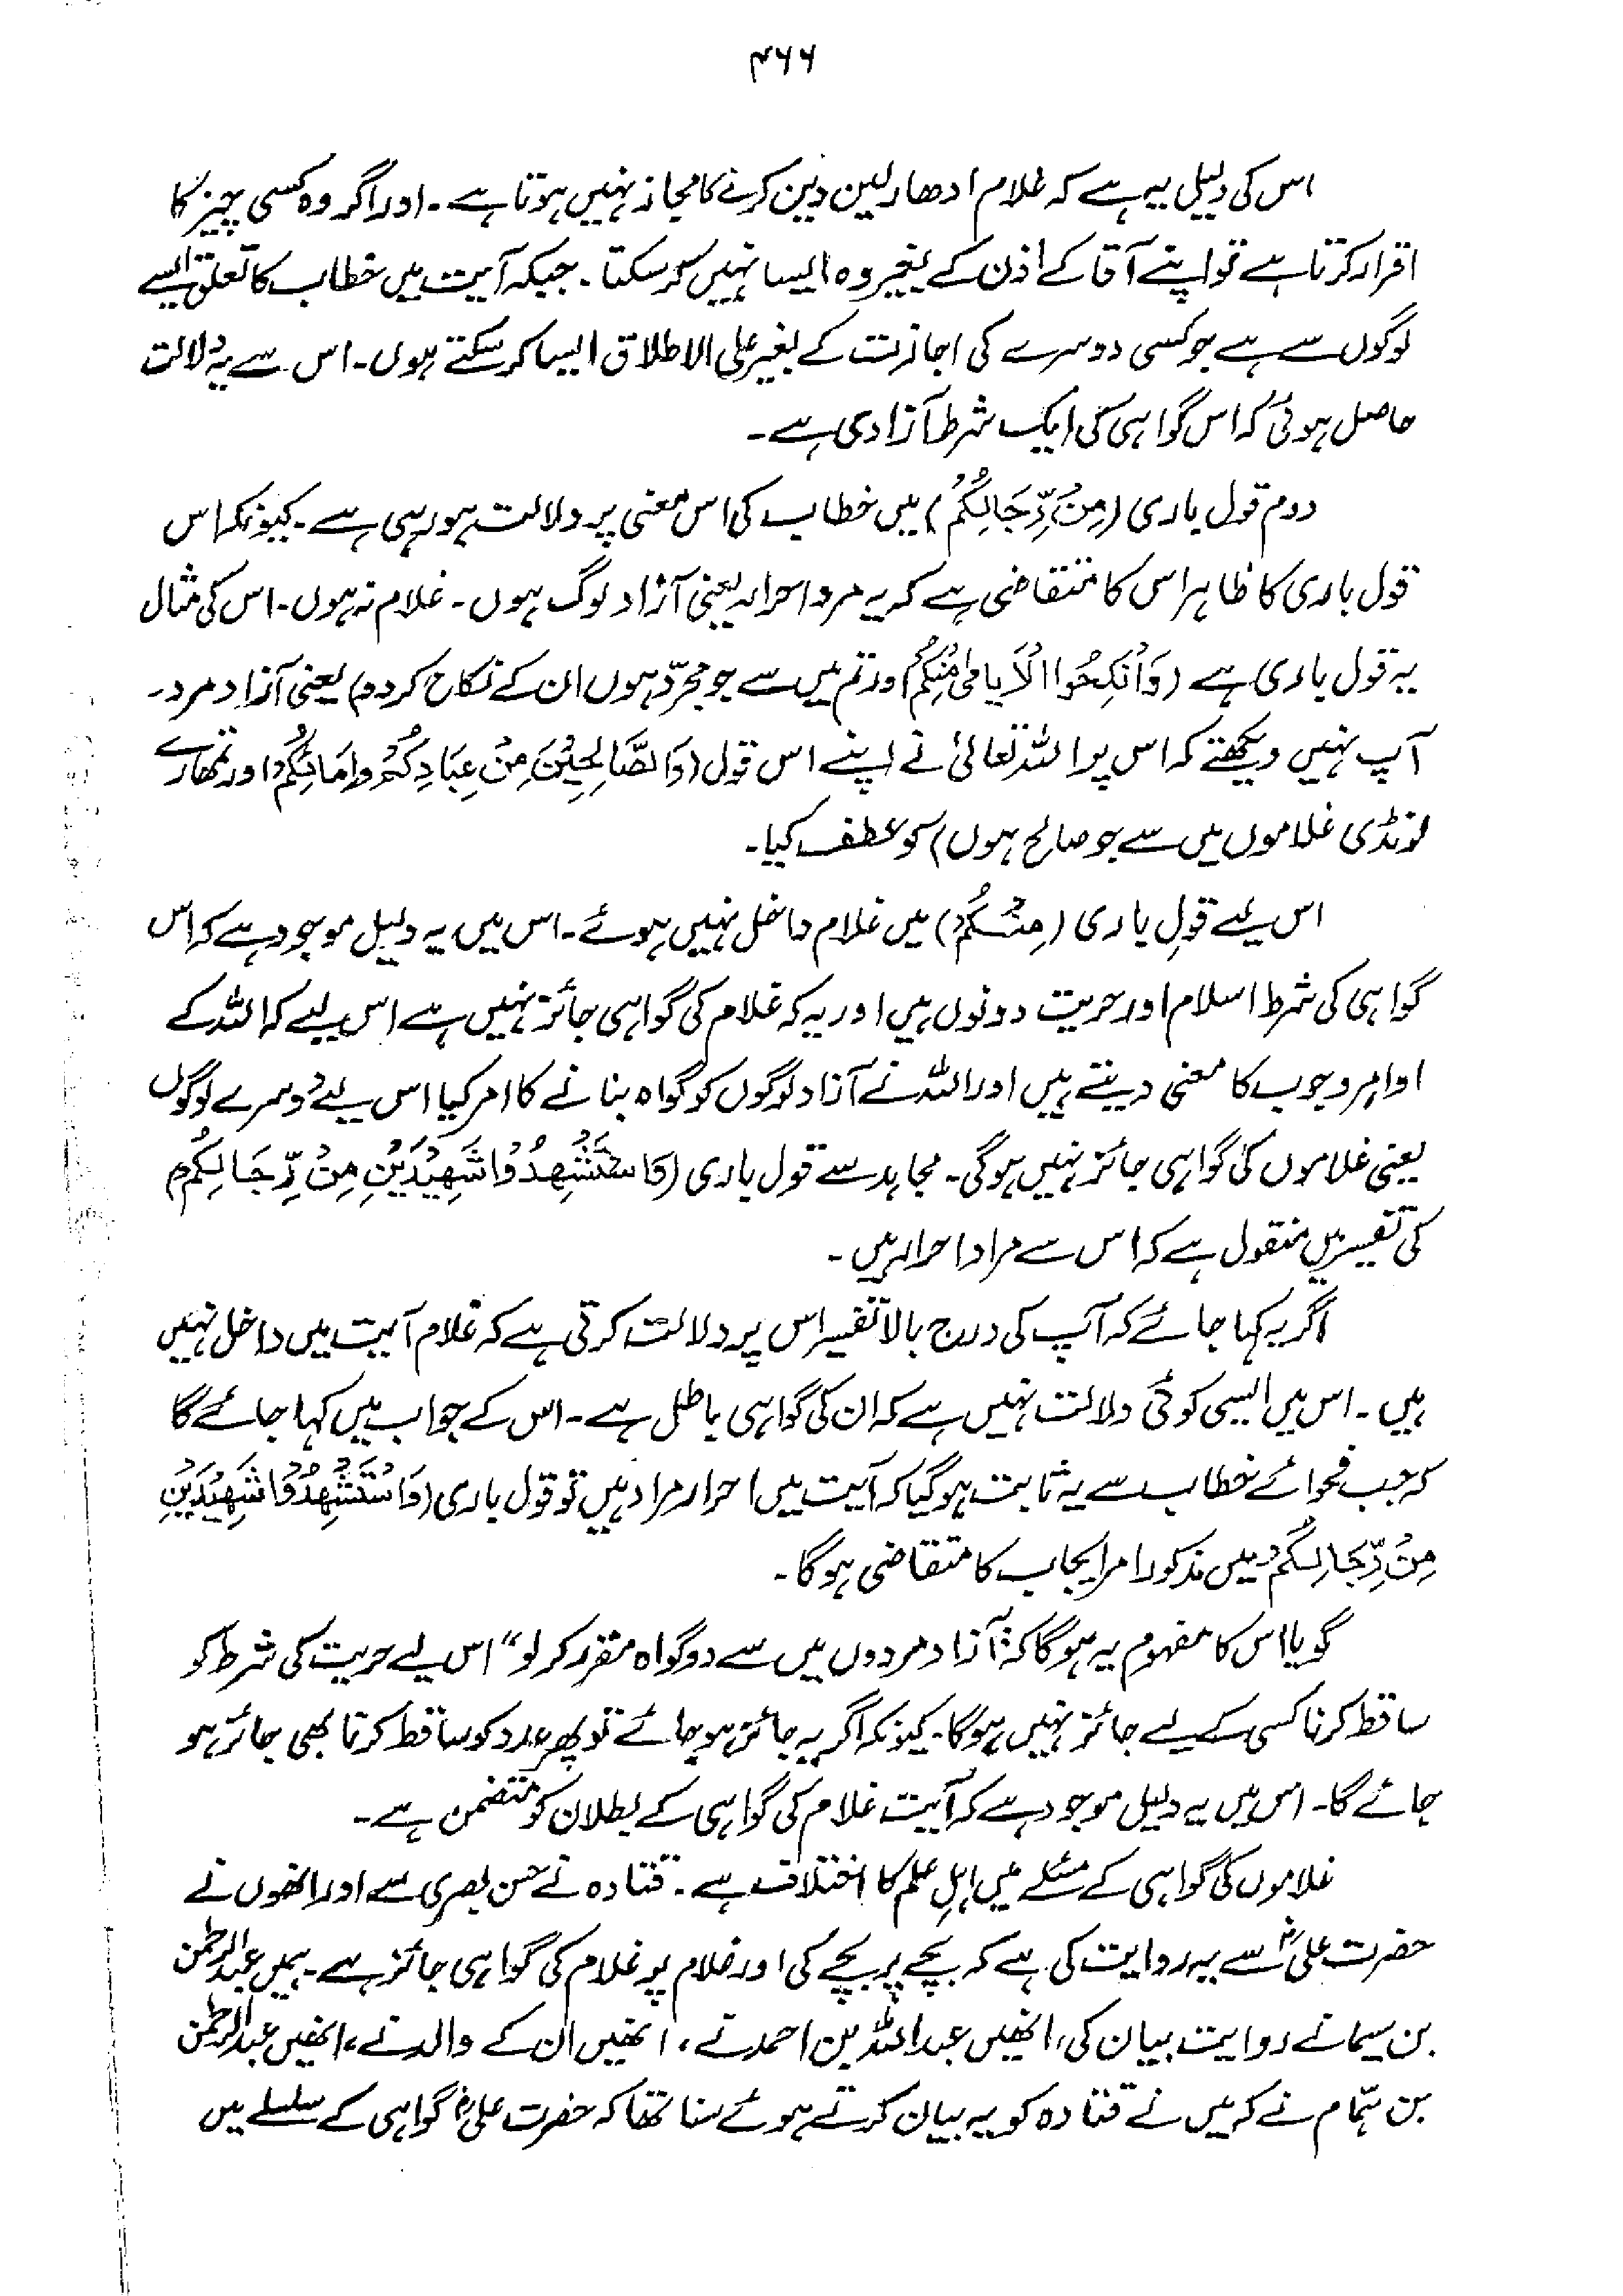 ۴۶۶
اس کی دلیل یہ ہے کہ غلام ادھار لین دین کرنے کا مجاز نہیں ہوتا ہے۔ اور اگر وہ کسی چیز کا
اقرار کرتا ہے تو اپنے آقا کے اذن کے بغیر وہ ایسا نہیں کر سکتا۔ جبکہ آیت میں خطاب کا تعلق ایسے
لوگوں سے ہے جو کسی دوسرے کی اجازت کے بغیر علی الاطلاق ایسا کر سکتے ہوں۔ اس سے یہ دلالت
حاصل ہوئی کہ اس گواہی کی ایک شرط آزادی ہے۔
دوم قول باری (مِنْ رِّجَالِكُمْ) میں خطاب کی اس معنی پر دلالت ہو رہی ہے۔ کیونکہ اس
قول باری کا ظاہر اس کا متقاضی ہے کہ یہ مرد احرار یعنی آزاد لوگ ہوں۔ غلام نہ ہوں۔ اس کی مثال
یہ قول باری ہے (وَاَنْكِحُوا الْاَيَامٰى مِنْكُمْ اور تم میں سے جو مجرّد ہوں ان کے نکاح کر دو) یعنی آزاد مرد۔
آپ نہیں دیکھتے کہ اس پر اللہ تعالیٰ نے اپنے اس قول (وَالصَّالِحِيْنَ مِنْ عِبَادِكُمْ وَاِمَائِكُمْ اور تمھارے
لونڈی غلاموں میں سے جو صالح ہوں) کو عطف کیا۔
اس لئے قولِ باری (مِنْكُمْ) میں غلام داخل نہیں ہوئے۔ اس میں یہ دلیل موجود ہے کہ اس
گواہی کی شرط اسلام اور حریت دونوں ہیں اور یہ کہ غلام کی گواہی جائز نہیں ہے اس لیے کہ اللہ کے
اوامر وجوب کا معنی دیتے ہیں اور اللہ نے آزاد لوگوں کو گواہ بنانے کا امر کیا اس لئے دوسرے لوگوں
یعنی غلاموں کی گواہی جائز نہیں ہوگی۔ مجاہد سے قول باری (وَاسْتَشْهِدُوْا شَهِيْدَيْنِ مِنْ رِّجَالِكُمْ)
کی تفسیر میں منقول ہے کہ اس سے مراد احرار ہیں۔
اگر یہ کہا جائے کہ آپ کی درج بالا تفسیر اس پر دلالت کرتی ہے کہ غلام آیت میں داخل نہیں
ہیں۔ اس میں ایسی کوئی دلالت نہیں ہے کہ ان کی گواہی باطل ہے۔ اس کے جواب میں کہا جائے گا
کہ جب فحوائے خطاب سے یہ ثابت ہو گیا کہ آیت میں احرار مراد ہیں تو قول باری (وَاسْتَشْهِدُوْا شَهِيْدَيْنِ
مِنْ رِّجَالِكُمْ) میں مذکور امر ایجاب کا متقاضی ہوگا۔
گویا اس کا مفہوم یہ ہوگا کہ "آزاد مردوں میں سے دو گواہ مقرر کر لو" اس لیے حریت کی شرط کو
ساقط کرنا کسی کے لیے جائز نہیں ہوگا۔ کیونکہ اگر یہ جائز ہو جائے تو پھر عدد کو ساقط کرنا بھی جائز ہو
جائے گا۔ اس میں یہ دلیل موجود ہے کہ آیت غلام کی گواہی کے بطلان کو متضمن ہے۔
غلاموں کی گواہی کے مسئلے میں اہلِ علم کا اختلاف ہے۔ قتادہ نے حسن بصری سے اور انھوں نے
حضرت علیؓ سے یہ روایت کی ہے کہ بچے پر بچے کی اور غلام پر غلام کی گواہی جائز ہے۔ ہمیں عبدالرحمٰن
بن سیما نے روایت بیان کی، انھیں عبداللہ بن احمد نے، انھیں ان کے والد نے، انھیں عبدالرحمٰن
بن ہمّام نے کہ میں نے قتادہ کو یہ بیان کرتے ہوئے سنا تھا کہ حضرت علیؓ گواہی کے سلسلے میں